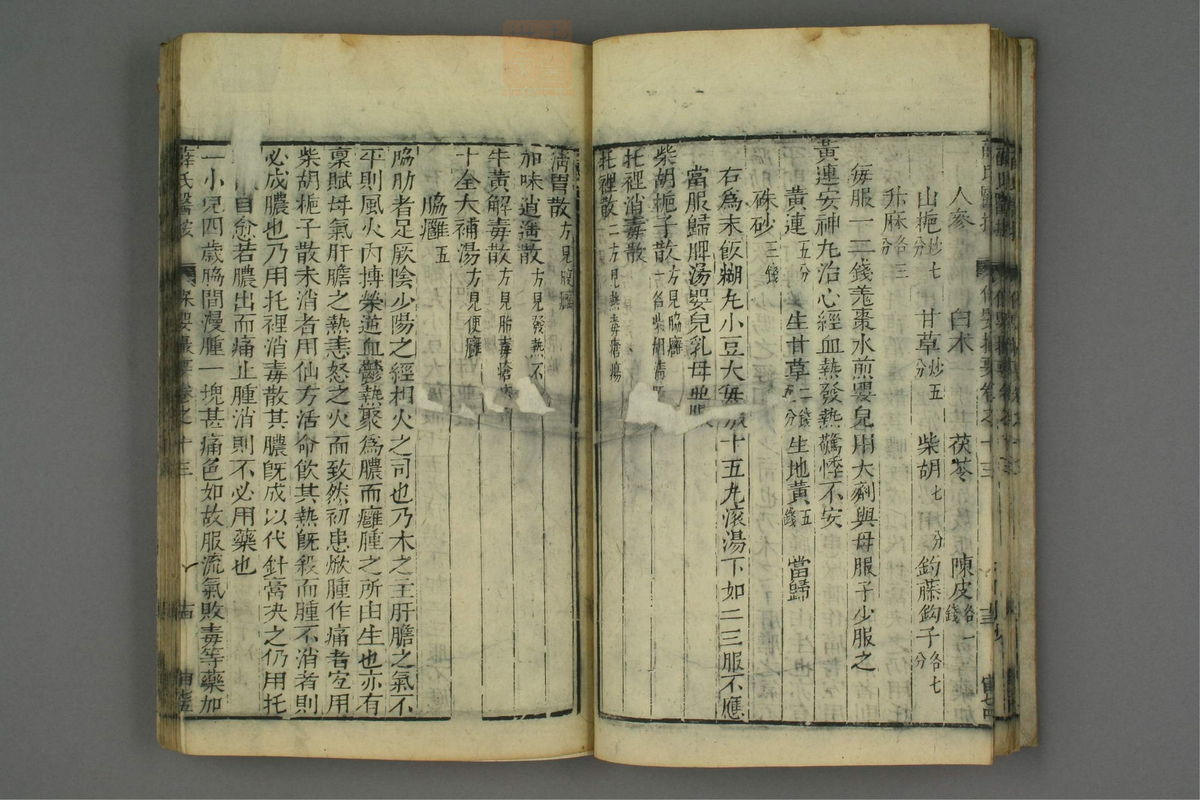 人參 白朮 茯苓 陳皮各一錢
山梔炒七分 甘草炒五分 柴胡七分 鈎藤鈎子各七分
升麻各三分
每服一二錢羗棗水煎嬰兒用大劑與母服子少服之
黃連安神丸治心經血熱發熱驚悸不安
黃連五分 生甘草二錢五分 生地黃五錢 當歸
硃砂三錢
右爲末飯糊丸小豆大每服十五丸滚湯下如二三服不應
當服歸脾湯嬰兒乳母並服
柴胡梔子散方見脇癰一名柴胡清肝
托裡消毒散
托裡散二方見熱毒瘡瘍
清胃散方見腮癰
加味逍遥散方見發熱不
牛黃解毒散方見胎毒瘡
十全大補湯方見便癰
脇癰五
脇肋者足厥陰少陽之經相火之司也乃木之主肝膽之氣不
平則風火內搏榮逆血鬱熱聚爲膿而癰腫之所由生也亦有
稟賦母氣肝膽之熱恚怒之火而致然初患焮腫作痛者宜用
柴胡梔子散未消者用仙方活命飲其熱旣殺而腫不消者則
必成膿也乃用托裡消毒散其膿旣成以代針膏决之仍用托
自愈若膿出而痛止腫消則不必用藥也
一小兒四歲脇間漫腫一塊甚痛色如故服流氣敗毒等藥加
薛氏醫按 保嬰撮要卷之十三